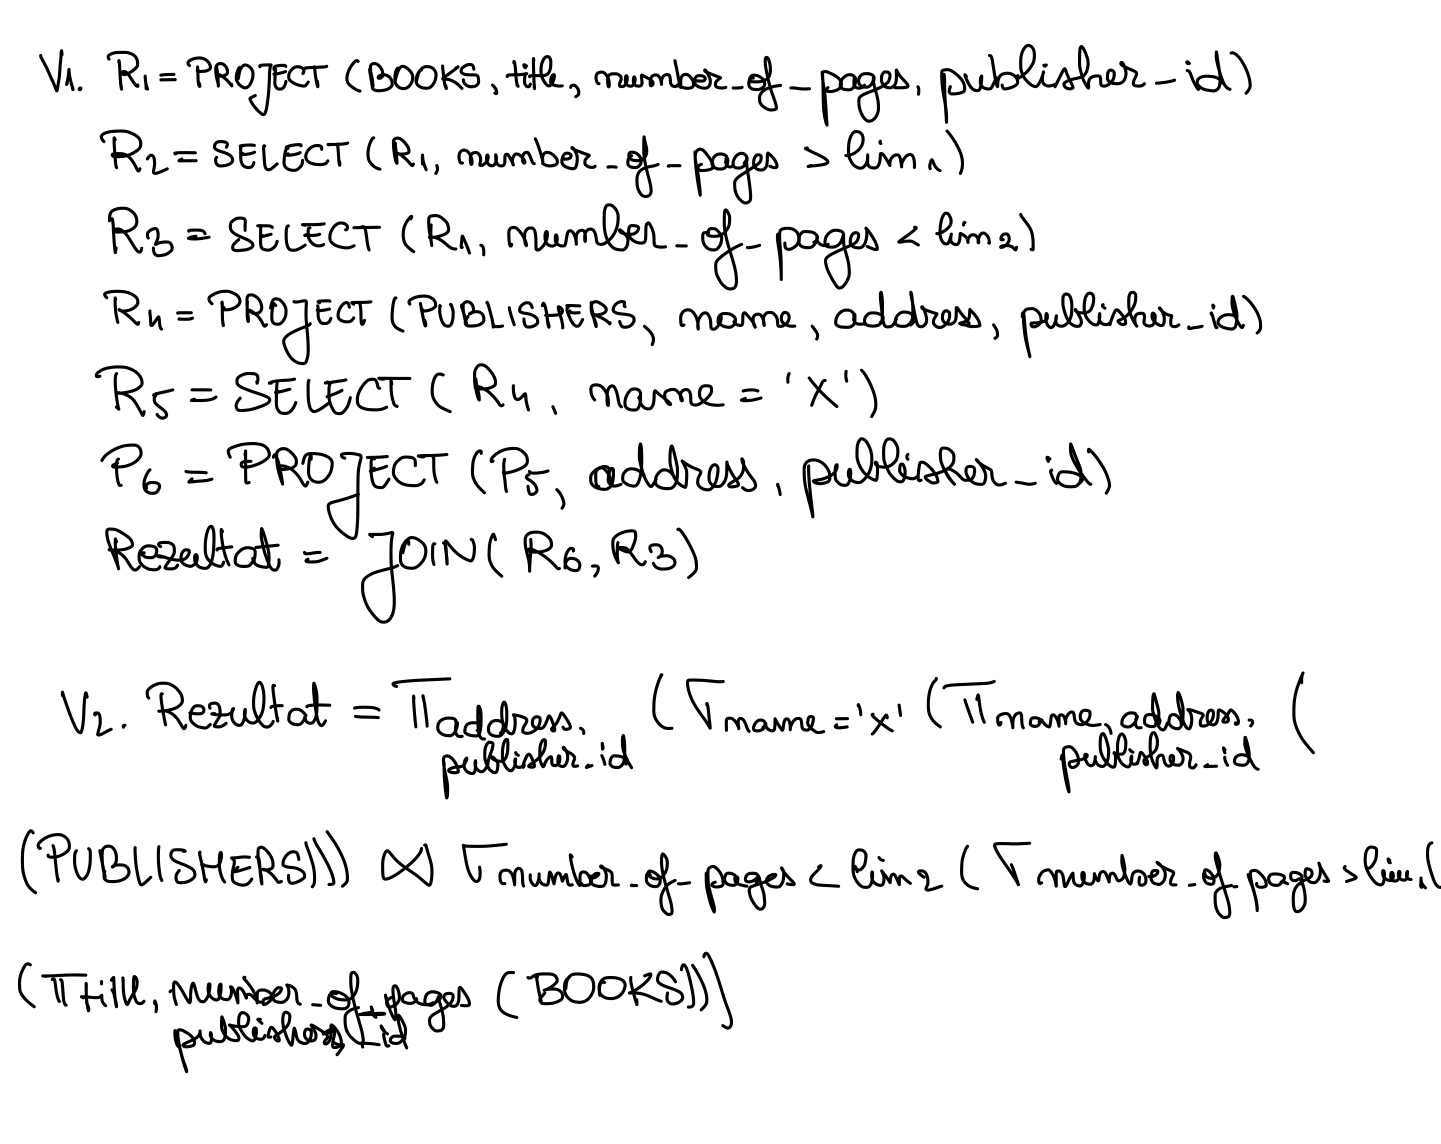 V1. R1 = PROJECT (BOOKS, title, number_of_pages, publisher_id)
R2 = SELECT (R1, number_of_pages > lim1)
R3 = SELECT (R1, number_of_pages < lim2)
R4 = PROJECT (PUBLISHERS, name, address, publisher_id)
R5 = SELECT (R4, name = 'X')
P6 = PROJECT (P5, address, publisher_id)
Rezultat = JOIN (R6, R3)
V2. Rezultat = π address, publisher_id (σ name = 'X' (π name, address, publisher_id (
(PUBLISHERS))) ⋈ σ number_of_pages < lim2 (σ number_of_pages > lim1 (
(π title, number_of_pages publisher_id (BOOKS)))]